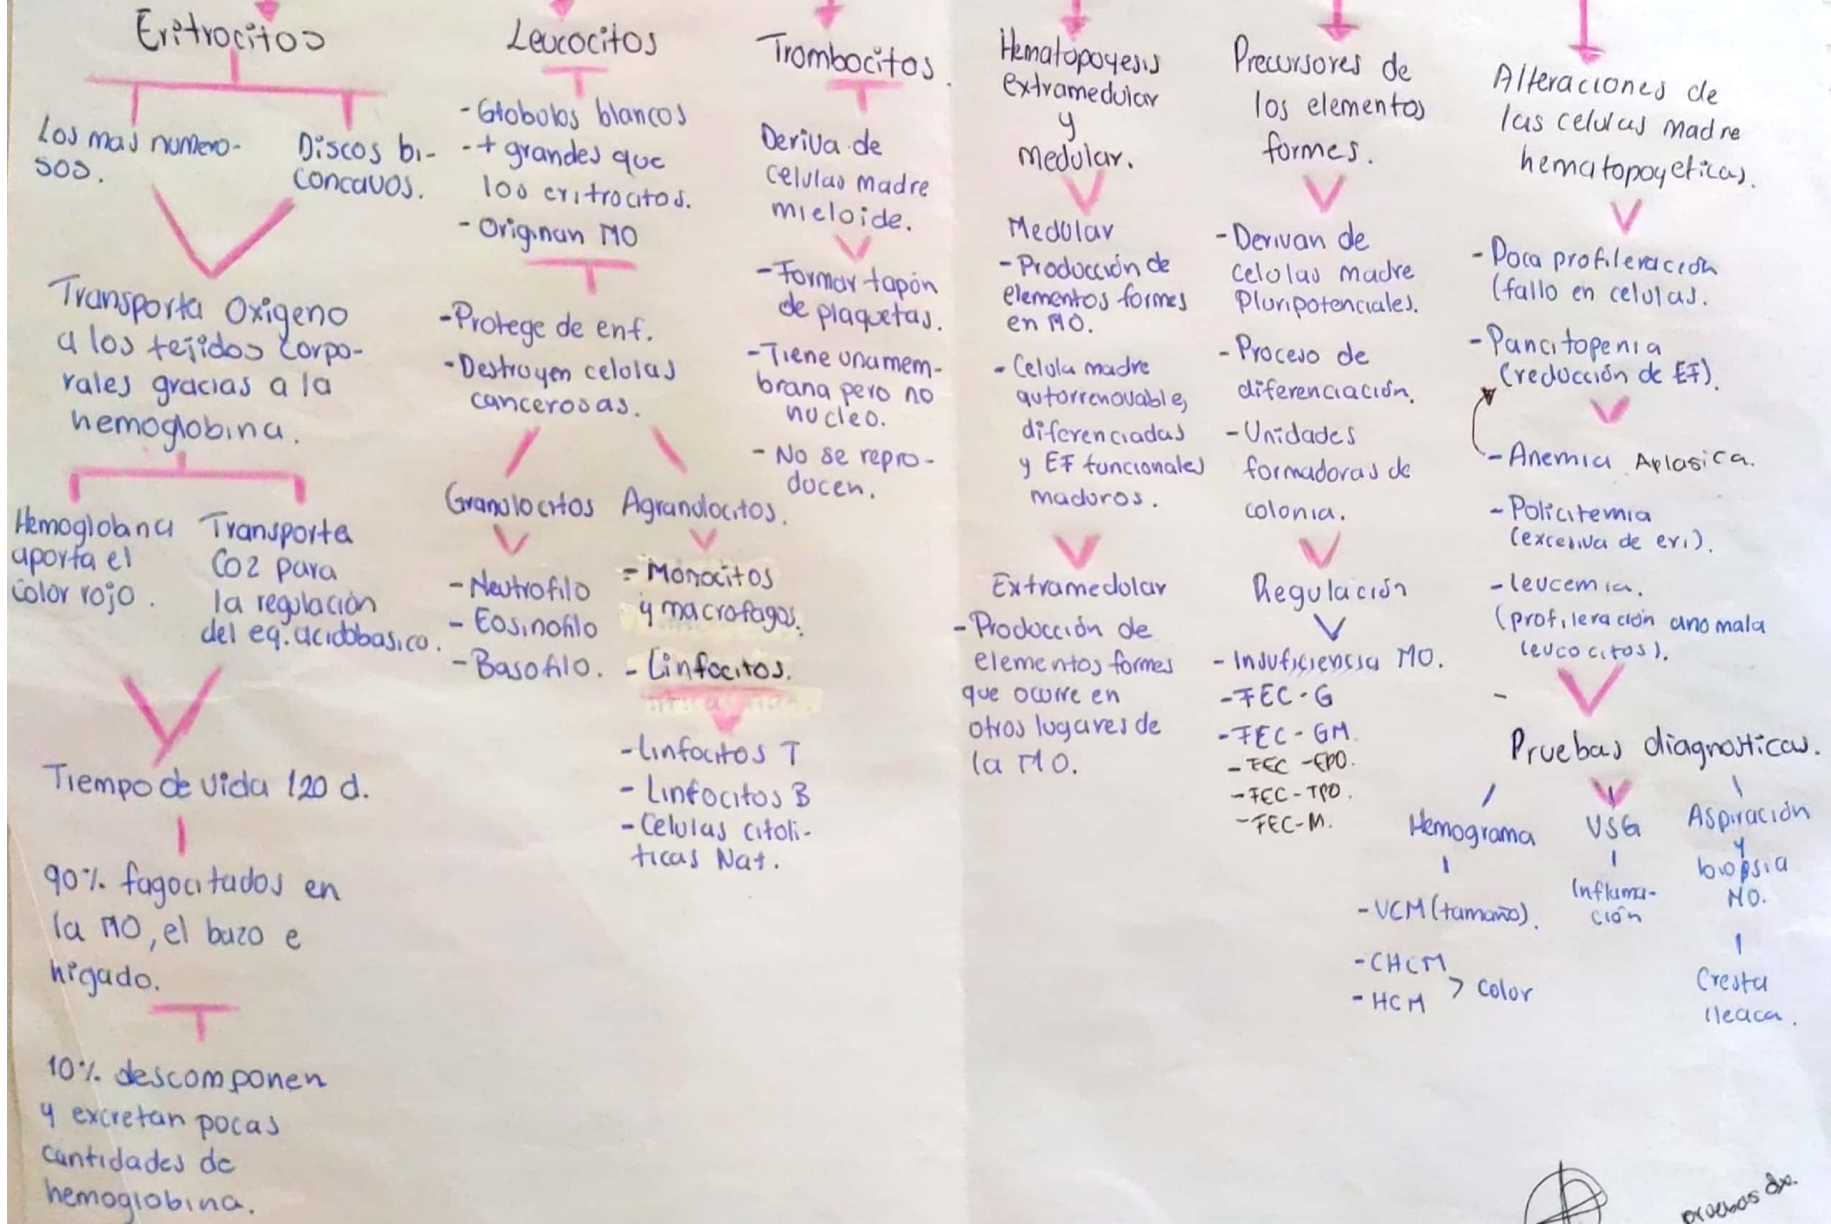 Eritrocitos
Los mas numero-
sos.
Discos bi-
concavos.
Transporta Oxigeno
a los tejidos corpo-
rales gracias a la
hemoglobina.
Hemoglobana
aporta el
color rojo.
Transporta
CO2 para
la regulación
del eq. acidobasico.
Tiempo de vida 120 d.
90% fagocitados en
la MO, el bazo e
higado.
10% descomponen
y excretan pocas
cantidades de
hemoglobina.
Leucocitos
- Globolos blancos
- + grandes que
los eritrocitos.
- Originan MO
- Protege de enf.
- Destruyen celolas
cancerosas.
Granolocitos
- Neutrofilo
- Eosinofilo
- Basofilo.
Agranolocitos.
- Monocitos
y macrofagos.
- Linfocitos.
- Linfocitos T
- Linfocitos B
- Celulas citoli-
ticas Nat.
Trombocitos.
Deriva de
celulas madre
mieloide.
- Formar tapón
de plaquetas.
- Tiene una mem-
brana pero no
nucleo.
- No se repro-
ducen.
Hematopoyesis
extramedular
y
medular.
Medular
- Producción de
elementos formes
en MO.
- Celula madre
autorrenovable,
diferenciadas
y EF funcionales
maduros.
Extramedolar
- Producción de
elementos formes
que ocurre en
otros lugares de
la MO.
Precursores de
los elementos
formes.
- Derivan de
celolas madre
Pluripotenciales.
- Proceso de
diferenciación.
- Unidades
formadoras de
colonia.
Regulación
- Insuficiencia MO.
- FEC - G
- FEC - GM.
- FEC - EPO.
- FEC - TPO.
- FEC-M.
Alteraciones de
las celulas madre
hematopoyeticas.
- Poca profileración
(fallo en celulas.
- Pancitopenia
(reducción de EF).
- Anemia Aplasica.
- Policitemia
(excesiva de eri).
- leucemia.
(profileración anomala
leucocitos).
-
Pruebas diagnosticas.
Hemograma
- VCM (tamaño).
- CHCM
- HCM > Color
VSG
Inflama-
ción
Aspiración
y
biopsia
MO.
Cresta
Ileaca.
pruebas dx.